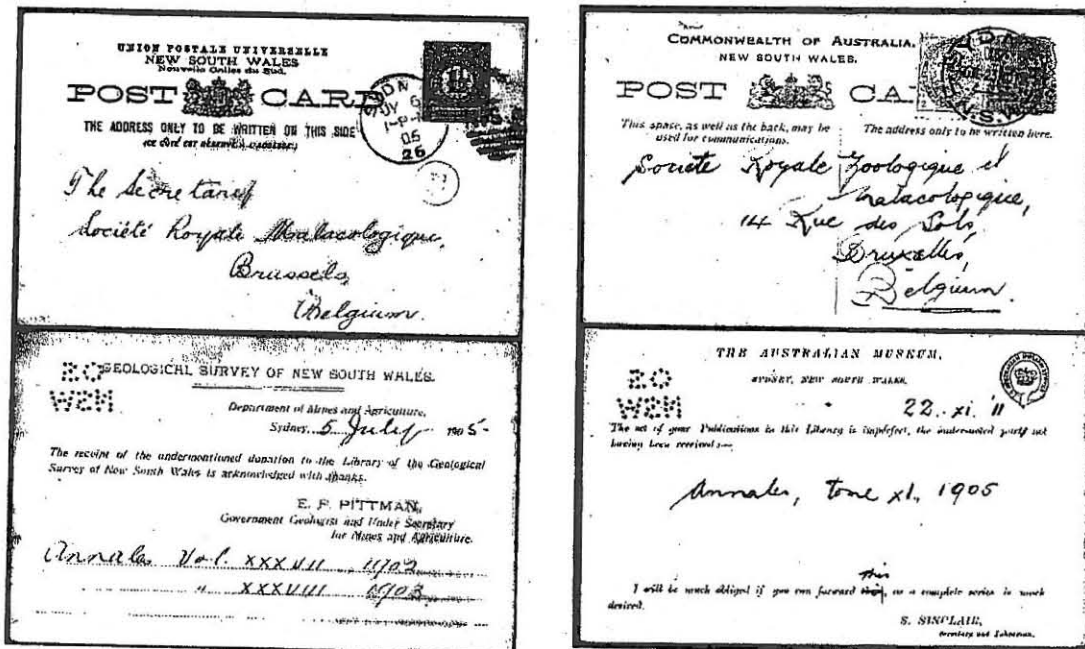 UNION POSTALE UNIVERSELLE
NEW SOUTH WALES
Nouvelle Galles du Sud.
POST CARD
THE ADDRESS ONLY TO BE WRITTEN ON THIS SIDE
JY 6
05
26
The Secretary
Société Royale Malacologique,
Brussels,
Belgium.
GEOLOGICAL SURVEY OF NEW SOUTH WALES.
Department of Mines and Agriculture,
Sydney, 5 July 1905
The receipt of the undermentioned donation to the Library of the Geological
Survey of New South Wales is acknowledged with thanks.
E. F. PITTMAN,
Government Geologist and Under Secretary
for Mines and Agriculture.
Annales Vol. XXXVII 1902
" XXXVIII 1903
COMMONWEALTH OF AUSTRALIA.
NEW SOUTH WALES.
POST CA
This space, as well as the back, may be
used for communications.
The address only to be written here.
Societe Royale Zoologique et
Malacologique,
14 Rue des Sols,
Bruxelles,
Belgium.
THE AUSTRALIAN MUSEUM,
SYDNEY, NEW SOUTH WALES.
22. xi. 11
The set of your Publications in this Library is imperfect, the undernoted parts not
having been received:—
Annales, tome xl, 1905
this
I will be much obliged if you can forward as a complete series is much
desired.
S. SINCLAIR,
Secretary and